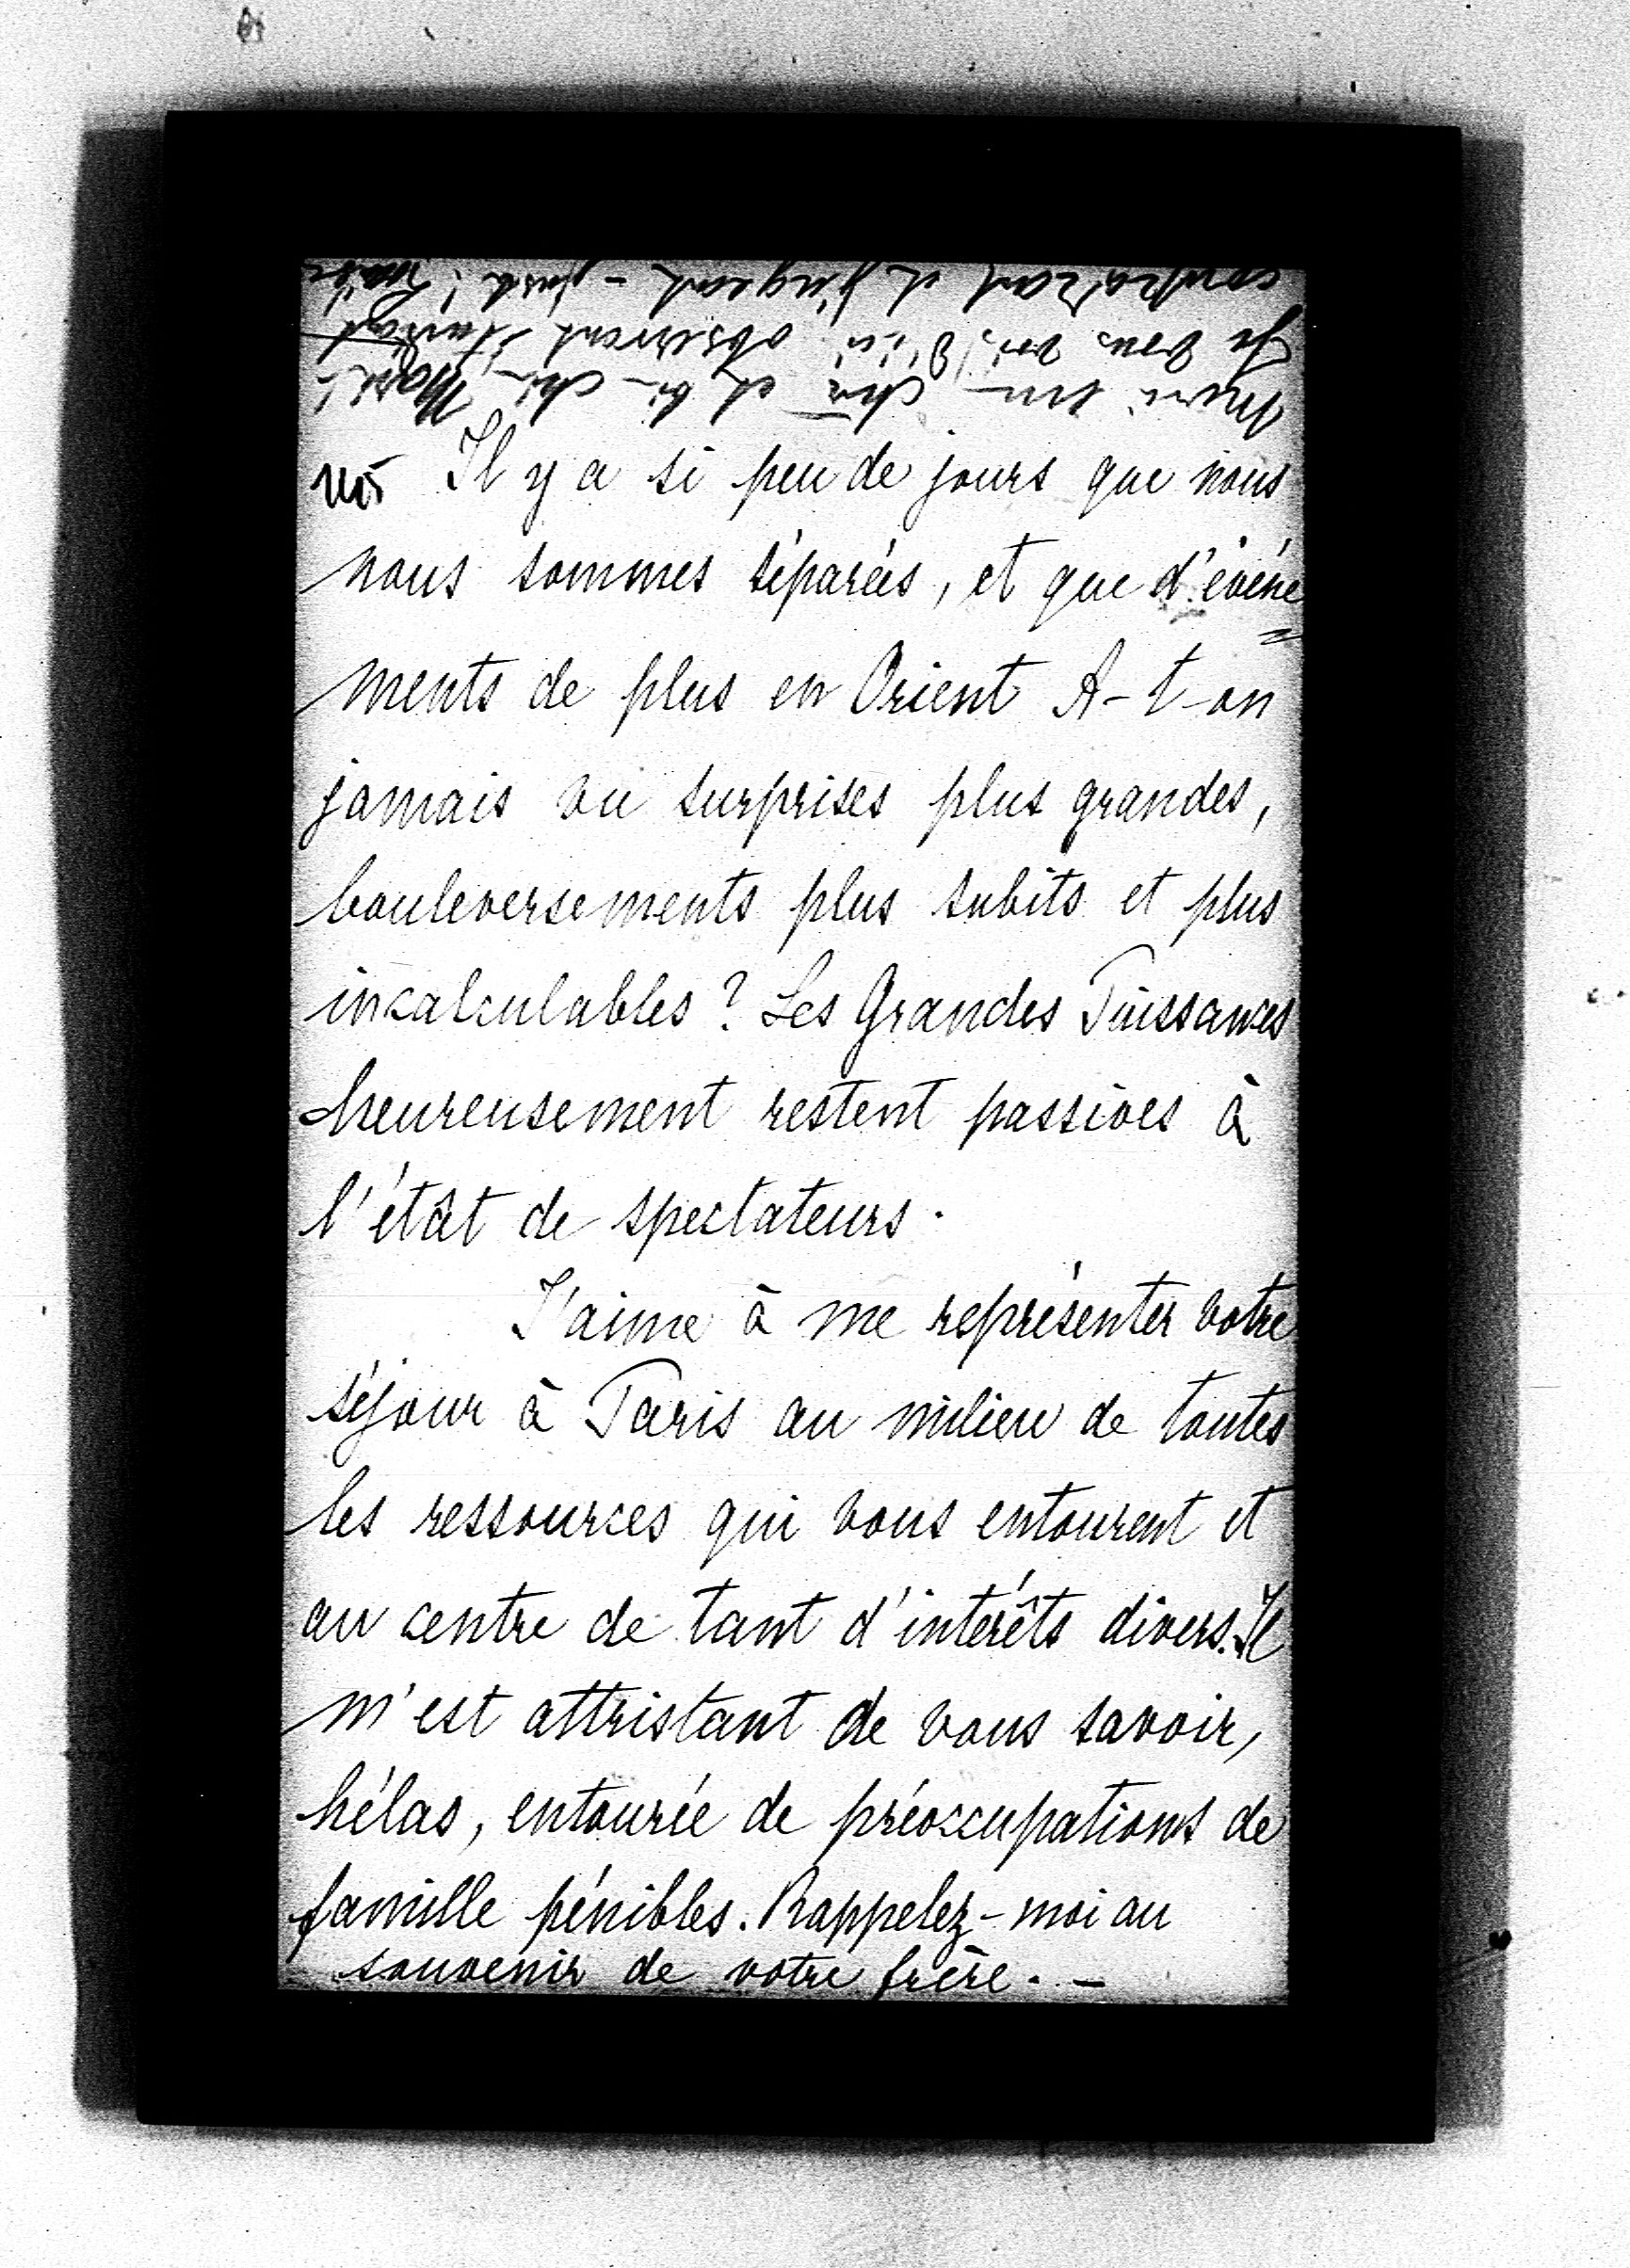 Je vous vois d'ici observant
et jugeant - juste!
Il y a si peu de jours que nous
nous sommes séparés, et que d'évène
ments de plus en Orient A-t-on
jamais vu surprises plus grandes,
bouleversements plus subits et plus
incalculables? Les Grandes Puissances
heureusement restent passives à
l'étât de spectateurs.
J'aime à me représenter votre
séjour à Paris au milieu de toutes
les ressources qui vous entourent et
au centre de tant d'intérêts divers. Il
m'est attristant de vous savoir,
hélas, entourée de préoccupations de
famille pénibles. Rappelez-moi au
souvenir de votre frère. -